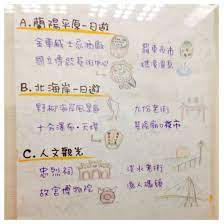 A.蘭陽平原一日遊
金車威士忌酒廠
羅東夜市
國立傳統藝術中心
礁溪溫泉
B.北海岸一日遊
野柳海岸風景區
九份老街
十分瀑布、天燈
基隆廟口夜市
C.人文觀光
忠烈祠
淡水老街
故宮博物院
漁人碼頭